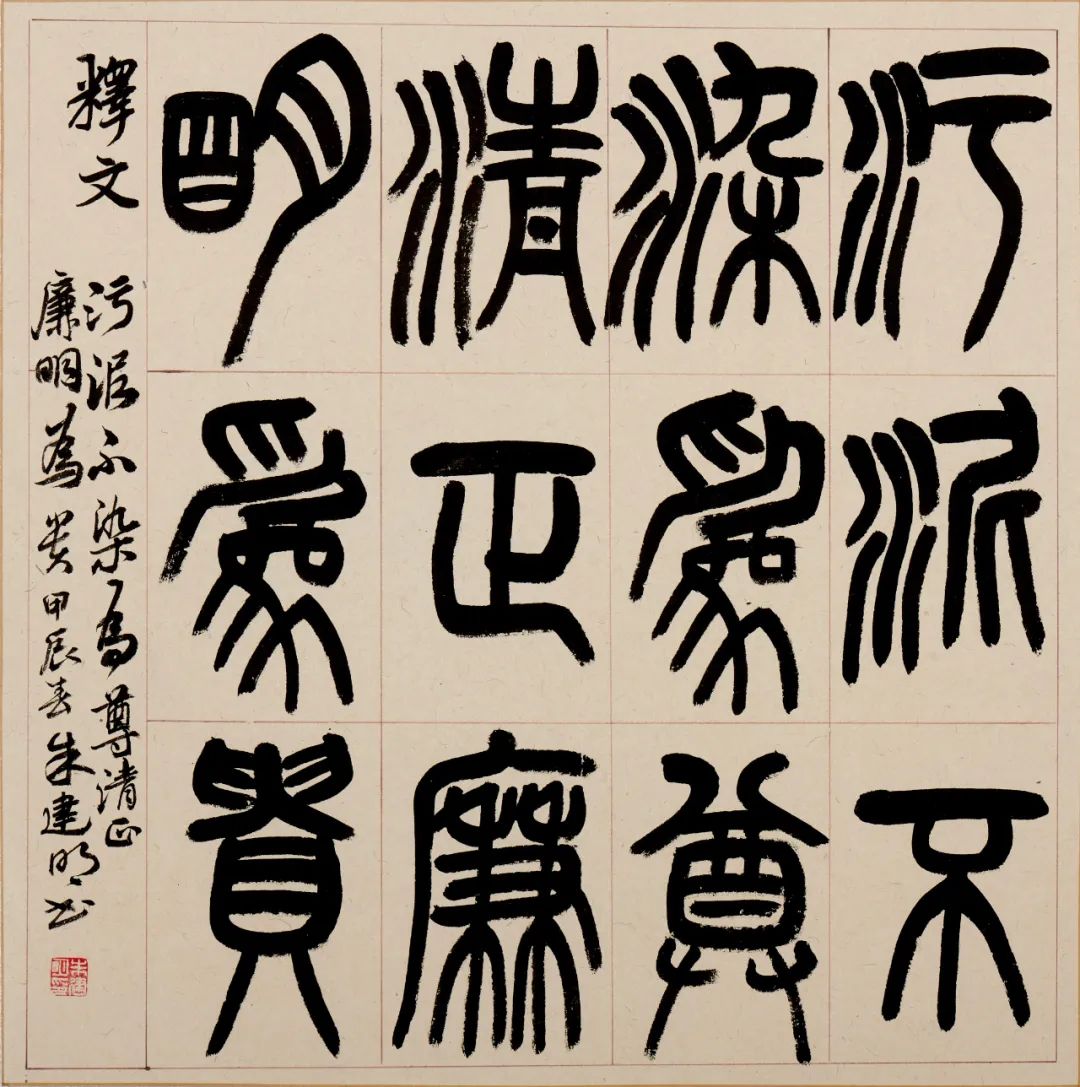 污泥不
染為尊
清正廉
明為貴
釋文
污泥不染為尊清正
廉明為貴甲辰春朱建明書